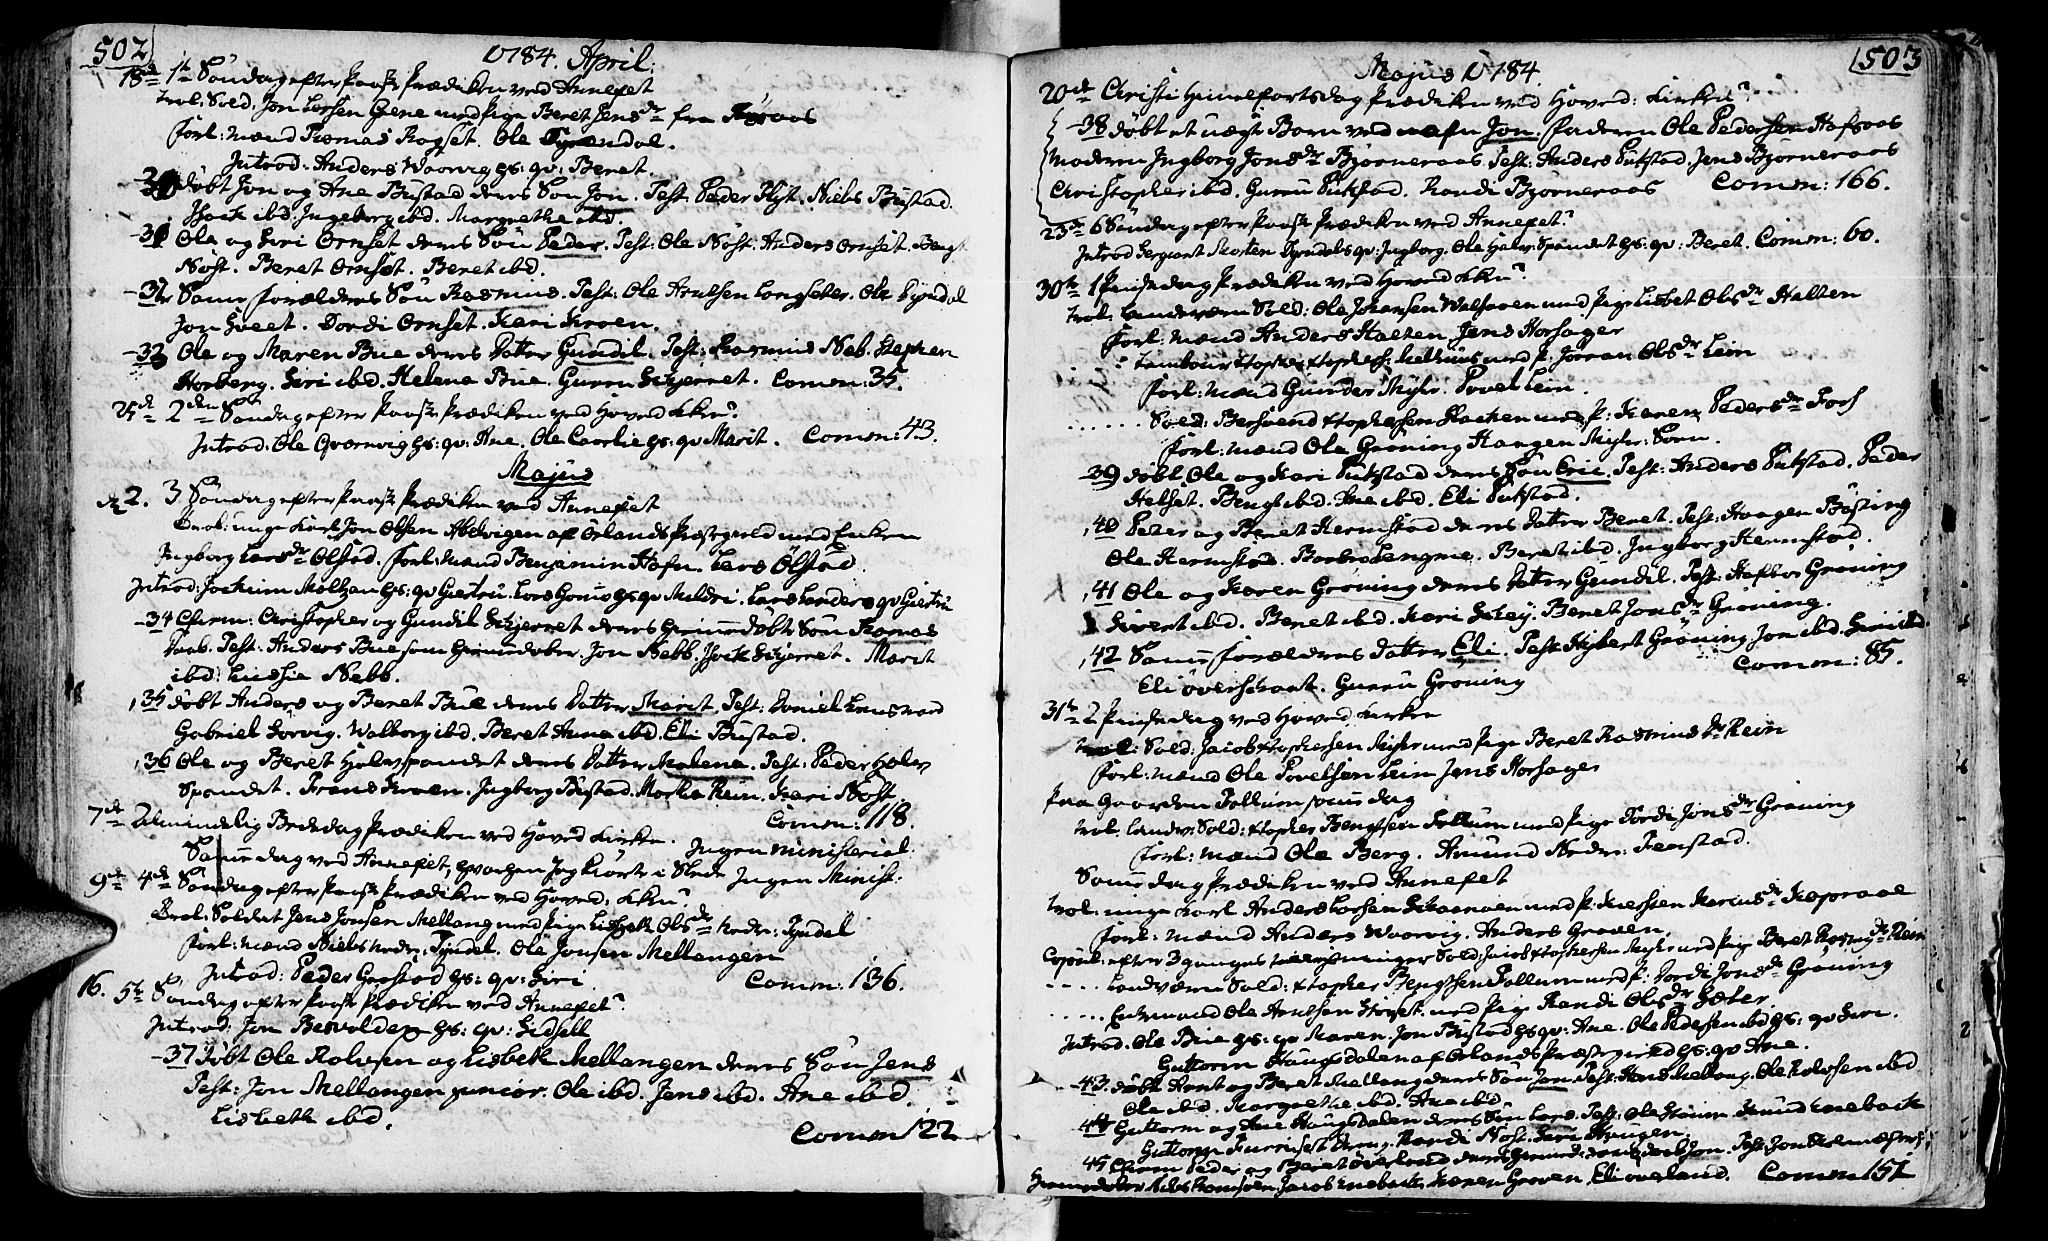 502
1784. April.
18de 1te Søndag efter Paaske Prædiken ved Annexet
Trol: Sold. Jon Larsen Giene med Pige Beret Jensdr fra
Forl: mænd Tomas Rogset. Ole Tyrendal.
Introd: Anders Waarvig gs: qv: Beret.
døbt Jon og Ane Bustad deres Søn Jon. Test: Peder Nøst. Niels Bustad.
Isach ibd. Ingeborg ibd. Margrethe ibd.
Ole og Siri Ornset deres Søn Peder. Test: Ole Nøst. Anders Ornset. Bengt
Nøst. Beret Ornset. Beret ibd.
Samme Forældres Søn Rasmus. Test: Ole Arntsen Langseter. Ole Tyndal
Jon Hveet. Dordi Ornset. Kari Kroen.
Ole og Maren Bue deres Datter Gundil. Test: Rasmus Neb. Stephen
Horberg. Siri ibd. Helena Bue. Gurru Skjerret. Comm: 35.
25de 2den Søndag efter Paaske Prædiken ved Hoved Kku?
Introd: Ole Qvarnvig gs: qv: Ane. Ole Caarlie gs: qv Marit. Comm: 43.
Majus
d. 2. 3 Søndag efter Paaske Prædiken ved Annexet
Trol: unge Karl Jon Olsen Aldvigen af Ørlands Præstegield med Enken
Ingborg Larsdr Ølstad. Forl: mænd Benjamin Hafn. Lars Ølstad.
Introd: Joachum Moltzau gs: qv Giertru. Lars Gomo gs: qv Mildri. Lars Sanders qv Giertru
-34 Chrm: Christopher og Gundil Skjerret deres hiemmedøbte Søn Thomas
Daab. Test: Anders Bue som hiemmedøber. Jon Nebb. Isach Skjerret. Marit
ibd. Lucsia Nebb.
35 døbt Anders og Beret Bue deres Datter Marit. Test: Daniel
Gabriel Sørvig. Walborg ibd. Beret Anna ibd. Eli Bustad.
36 Ole og Beret Halvspandet deres Datter Malena. Test: Peder Halv
Spandet. Frans Kroen. Ingborg Bustad. Marta Rein. Kari Nøst.
Comm: 118.
7de Almindelig Bededag Prædiken ved Hoved Kirken. Ingen ministerial:
Samme dag ved Annexet, hvorhen jeg kiørte i Slede Ingen Minist:
9de 4de Søndag efter Paaske Prædiken ved Hoved: Kku?
Trol: Soldat Jens Jonsen Mellang med Pige Lisbeth Olsdr Nedre: Tyndel
Forl: mænd Niels Nedre: Tyndel. Ole Jonsen Mellangen
Introd: Peder Grøstad gs: qv: Siri. Comm: 136.
16. 5te Søndag efter Paaske Prædiken ved Annexet?
Introd: Jon Bervolden gs: qv: Sidsell
-37 Døbt Ole Rolvsen og Lisbeth Mellangen deres Søn Jens
Test: Jon Mellangen junior. Ole ibd. Jens ibd. Ane ibd.
Lisbeth ibd.
Comm 122
503
Majus 1784.
20de Christi Himmelfartsdag Prædiken ved Hoved: Kirken?
-38 døbt et uægt Barn ved nafn Jon. Faderen Ole Pedersen Hafsaas
Moderen Ingborg Jonsdr Biørneraas Test: Anders Putstad. Jens Biørneraas
Christopher ibd. Gurru Putstad. Randi Biørneraas Comm: 166.
23de 6 Søndag efter Paaske Prædiken ved Annexet?
Introd Sergiant Morten Tyndels qv: Ingborg. Ole Halv Spandet gs: qv: Beret. Comm: 60.
30te 1 Pintsedag Prædiken ved Hoved Kku?
Trol: Landværn Sold: Ole Johansen Walsøeen med Pige Lisbet Olsdr Halten
Forl: mænd Anders Halten Jens Horsager
Tambour med P. Jorran Olsdr Lein
Forl: mænd Gunder Myhr. Povel Lein.
Sold: Bersvend Hopkesen Hachen med P: Karen Pedersdr Fors
Forl: mænd Ole Grøning Haagen Myhr: Søn.
39 døbt Ole og Kari Putstad deres Søn Eric. Test: Anders Putstad. Peder
Helset. Bengt ibd. Ane ibd. Eli Putstad.
40 Peter og Beret Hermstad deres Datter Beret. Test: Haagen Bøsting
Ole Hermstad. Barbro Lengme. Beret ibd. Ingborg Hermstad.
41 Ole og Karen Grøning deres Datter Gundil. Test: Hafbor Grøning
Sivert ibd. Beret ibd. Kari Skey. Beret Jonsdr Grøning.
42 Samme Forældres Datter Eli. Test Hybert Grøning. Jon ibd. Siri ibd.
Eli Øverskaat. Gurru Grøning Comm: 85.
31te 2 Pintsedag ved Hoved Kirken
Trol: Sold: Jacob Stophersen Myhr med Pige Beret Rasmusdr Rein
Forl: mænd Ole Povelsen Lein Jens Horsager
Paa Gaarden Follum samme dag
Trol: Landv: Sold: Stopher Bengtsen Follum med Pige Dordi Jonsdr Grøning
Forl: mænd Ole Berg. Amund Nedre: Fenstad.
Samme dag Prædiken ved Annexet
Trol: unge Karl Anders Larsen Skaanøen med P: Kirsten Marcusdr Kopraae
Forl: mænd Anders Waarvig. Anders Graven.
Copul: efter 3 ganges tillysninger Sold: Jacob Stophersen Myhr med Pige Beret Rasmusdr Rein
Landværn Sold: Stopher Bengtsen Follum med P: Dordi Jonsdr Grøning
Enkemand Ole Arntsen Hopset med Pige Randi Olsdr Sæter.
Introd. Ole Bue gs: qv Maren. Jon Bustad gs: qv: Ane. Ole Pedersen ibd gs: qv Siri.
Guttorm Haugsdalen af Ørlands Præstegield gs: qv Ane.
43 døbt Arnt og Beret Mellang deres Søn Jon. Test: Hans Mellang. Ole Rolvsen ibd
Ole ibd. Margrethe ibd. Ane ibd.
44 Guttorm og Ane Haugsdalen deres Søn Lars. Test: Ole Knud Knebach
Guttorm Furruset dreng. Randi Nøst. Siri Haugen.
45 Chrm Peder og Beret Øverland deres hiemmedøbte Søn Jon. Test: Jon
Hiemmedøber Niels Jacob Knebach. Karen Graven. Eli Øverland. Comm 151